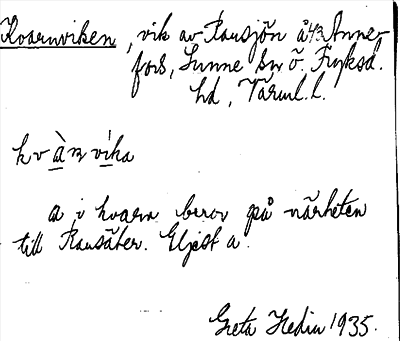 Kvarnviken, vik av Ransjön å 43 Anne-
fors, Sunne sn Ö. Fryksd.
hd, Värml. l.
kvà̱nvi̱ka
a i kvarn beror på närheten
till Ransäter. Eljest a.
Greta Hedin 1935.